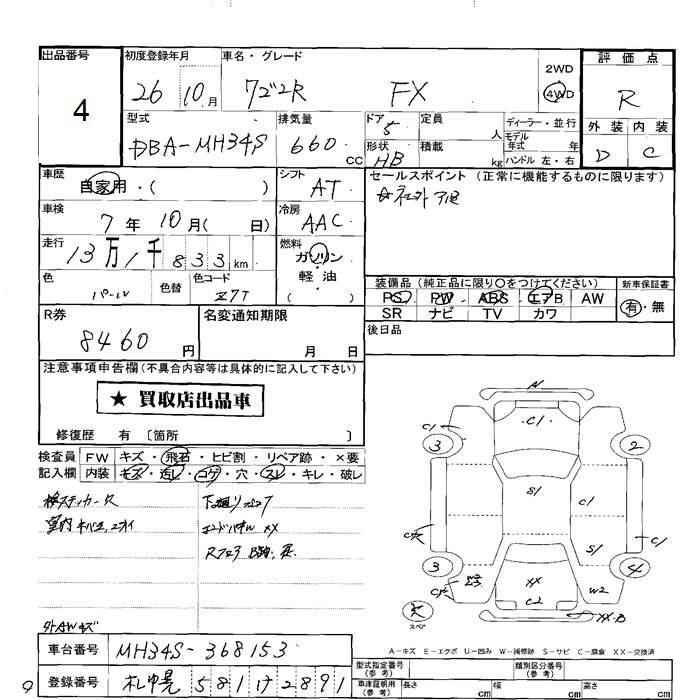 出品番号 初度登録年月 車名・グレード 評価点
4 26 10月 ワゴンR FX 2WD 4WD R
型式 排気量 ドア 5 定員 人 ディーラー・並行 外装 内装
DBA-MH34S 660 CC 形状 HB 積載 kg モデル年式 年 ハンドル 左・右 D C
車歴 自家用・( ) シフト AT セールスポイント (正常に機能するものに限ります)
車検 7年 10月( 日) 冷房 AAC
走行 13万1千833km 燃料 ガソリン 軽油 ( )
色 パール 色替 色コード Z7T
装備品 (純正品に限り〇をつけてください) 新車保証書
PS PW ABS エアB AW 有・無
SR ナビ TV カワ
R券 8460円 名変通知期限 月 日 後日品
注意事項申告欄(不具合内容等は具体的に記入して下さい)
★ 買取店出品車
修復歴 有 〔箇所 〕
検査員 FW キズ・飛石・ヒビ割・リペア跡・×要
記入欄 内装 キズ・汚レ・コゲ・穴・スレ・キレ・破レ
下廻り
エンドパネル XX
外AWキズ
A C1 C1 3 2
S1 C1
S1 C1
3 4
XX C2 W2
XX・B
スペア
A-キズ E-エクボ U-凹み W-補修跡 S-サビ C-腐食 XX-交換済
車台番号 MH34S-368153
型式指定番号(参考) 類別区分番号(参考)
登録番号 札幌 581 け 2891
車庫証明用(参考) 長さ cm 幅 cm 高さ cm
9